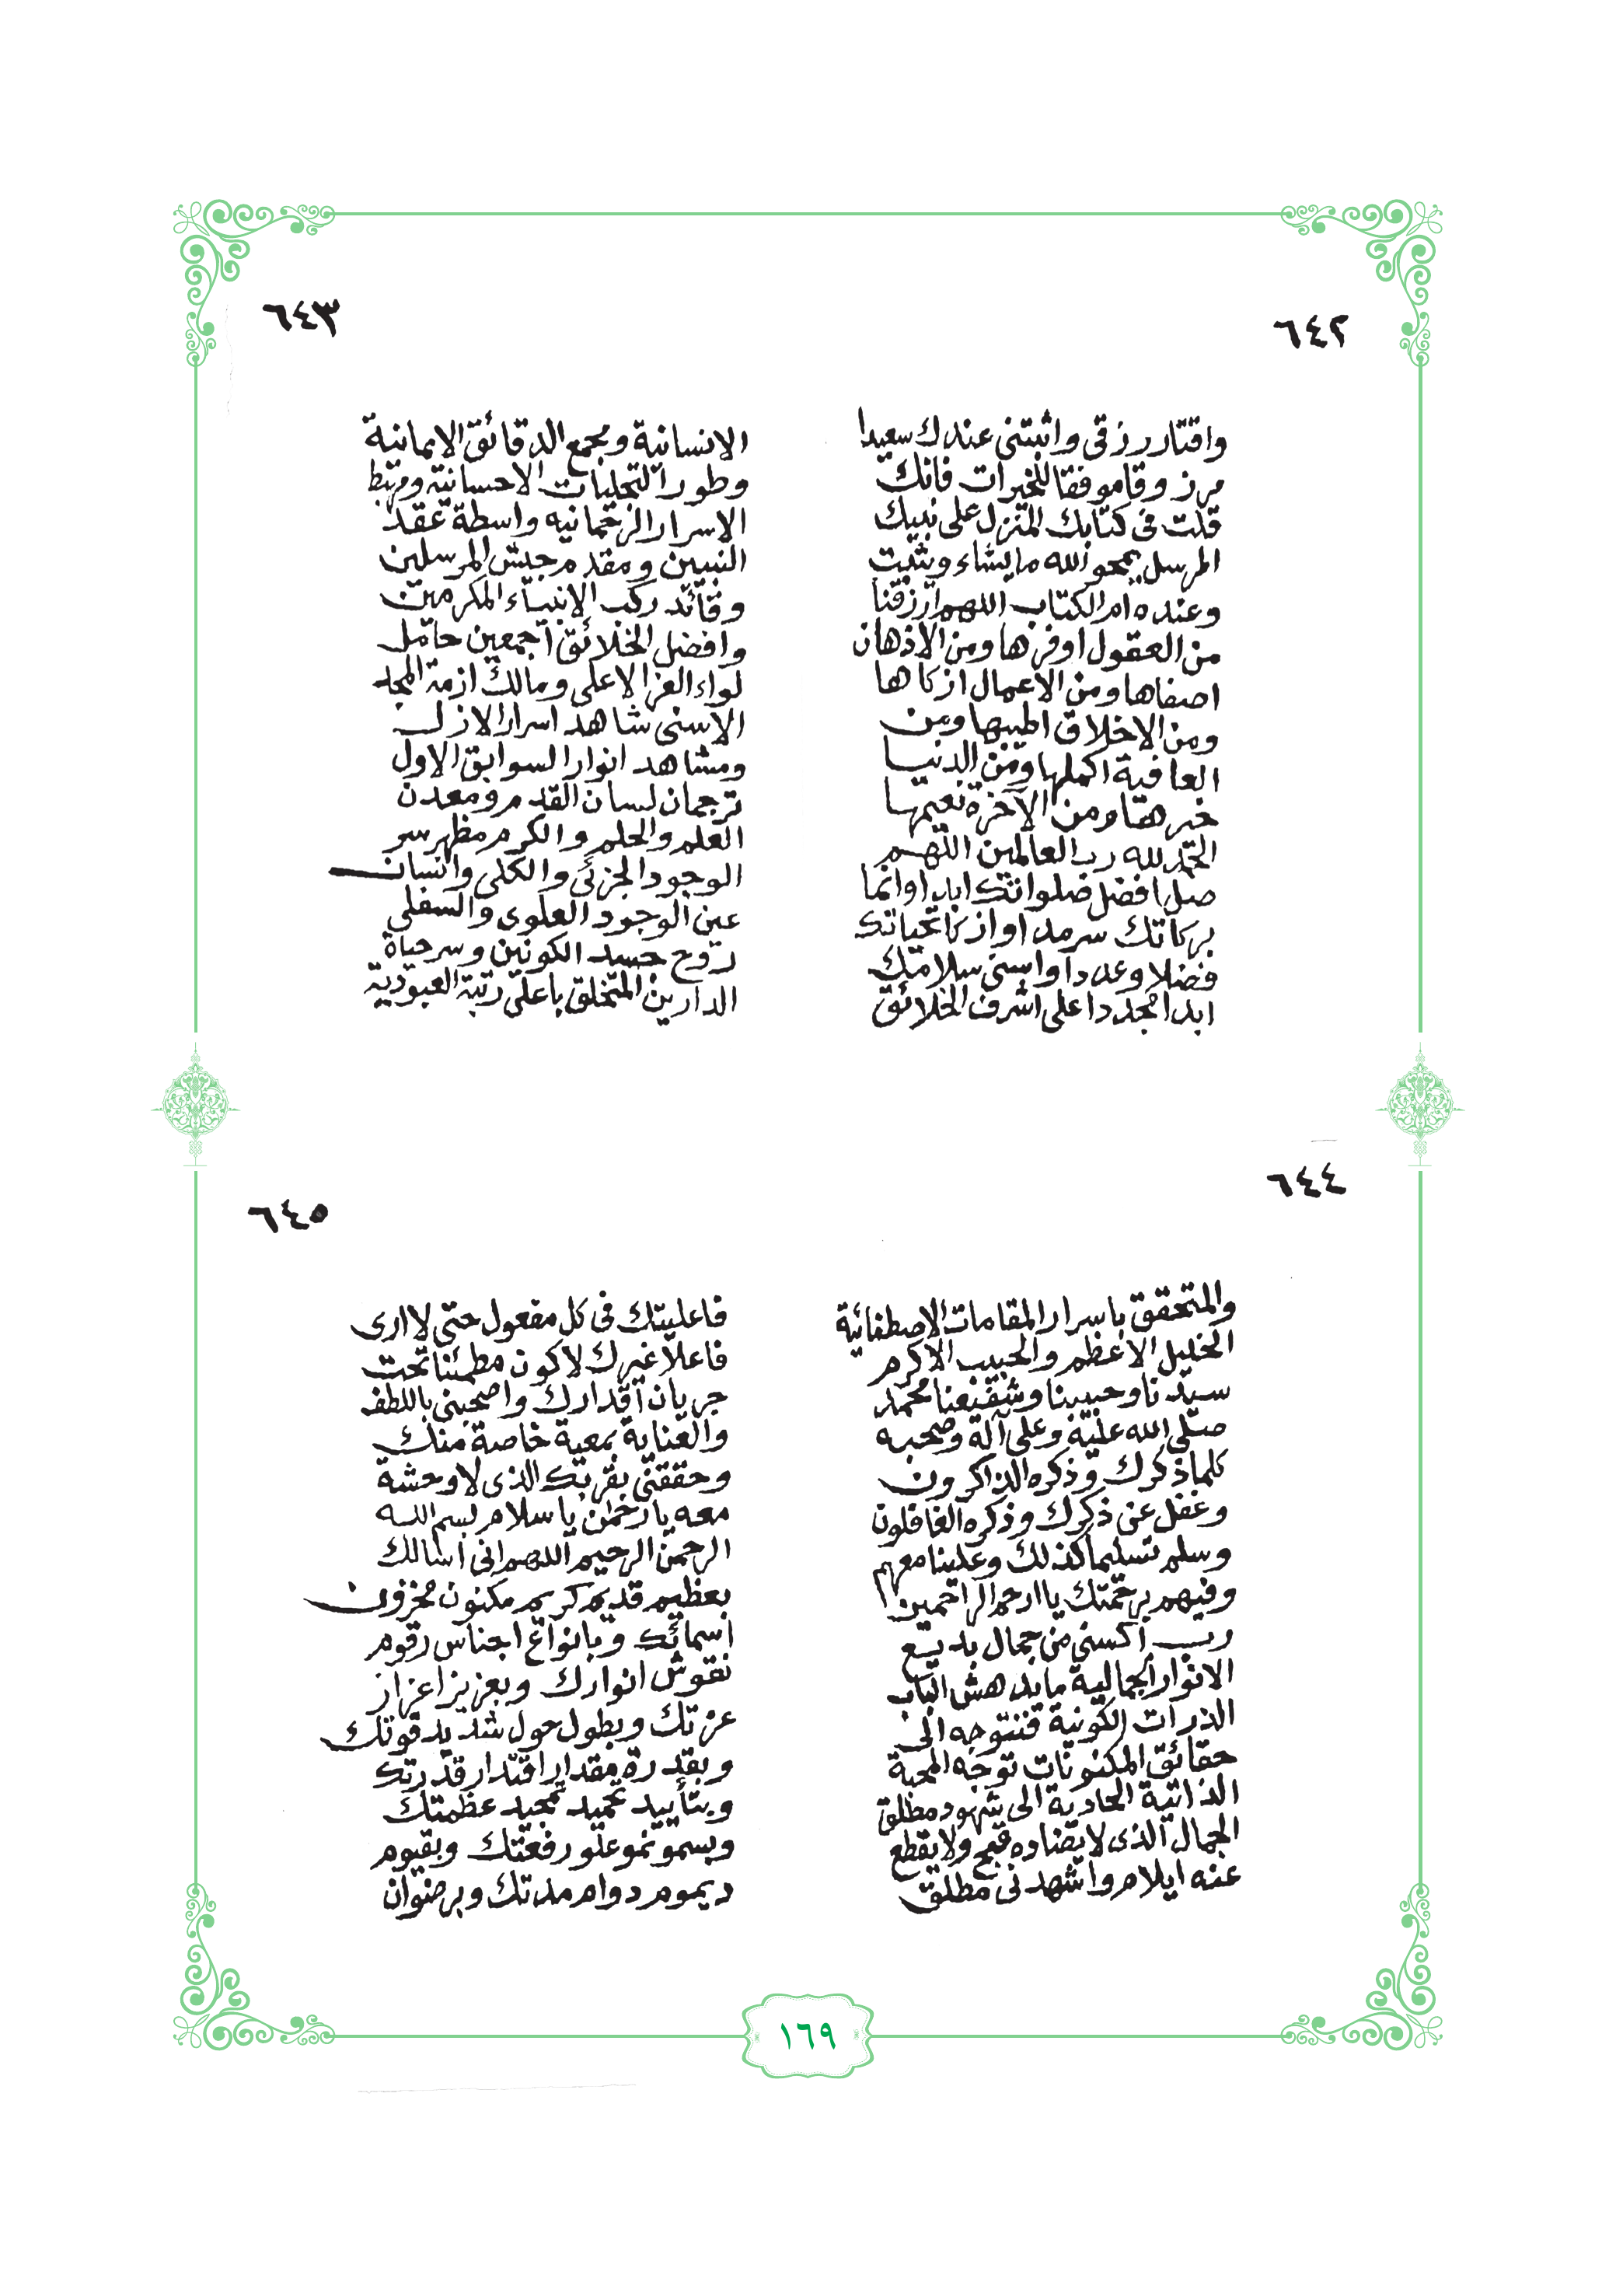 ٦٤٢
واقتار رزقى واثبتنى عندك سعيدا
مرزوقا موفقا للخيرات فانك
قلت فى كتابك المنزل على نبيك
المرسل يمحو الله ما يشاء ويثبت
وعنده ام الكتاب اللهم ارزقنا
من العقول اوفرها ومن الاذهان
اصفاها ومن الاعمال ازكاها
ومن الاخلاق اطيبها ومن
العافية اكملها ومن الدنيا
خيرها ومن الآخرة نعيمها
الحمد لله رب العالمين اللهم
صل افضل صلواتك ابدا وانما
بركاتك سرمدا وازكا تحياتك
فضلا وعددا واسنى سلامك
ابدا مجددا على اشرف الخلائق
٦٤٣
الانسانية ومجمع الدقائق الايمانية
وطور التجليات الاحسانية ومهبط
الاسرار الرحمانيه واسطة عقد
النبيين ومقدم جيش المرسلين
وقائد ركب الانبياء المكرمين
وافضل الخلائق اجمعين حامل
لواء العز الاعلى ومالك ازمة المجد
الاسنى شاهد اسرار الازل
ومشاهد انوار السوابق الاول
ترجمان لسان القدم ومعدن
العلم والحلم والكرم مظهر سر
الوجود الجزئى والكلى وانسان
عين الوجود العلوى والسفلى
روح جسد الكونين وسر حياة
الدارين المتخلق باعلى رتبة العبودية
٦٤٤
والمتحقق باسرار المقامات الاصطفائية
الخليل الاعظم والحبيب الاكرم
سيدنا وحبيبنا وشفيعنا محمد
صلى الله عليه وعلى آله وصحبه
كلما ذكرك وذكره الذاكرون
وغفل عن ذكرك وذكره الغافلون
وسلم تسليما كذلك وعلينا معهم
وفيهم برحمتك يا ارحم الراحمين
رب اكسنى من جمال بديع
الانوار الجمالية ما يدهش الباب
الذرات الكونية فتتوجه الى
حقائق المكنونات توجه المحبة
الذاتية الجاذبة الى شهود مطلق
الجمال الذى لا يضاده قبح ولا يقطع
عنه ايلام واشهدنى مطلق
٦٤٥
فاعليتك فى كل مفعول حتى لا ارى
فاعلا غيرك لاكون مطمئنا تحت
جريان اقدارك واصحبنى باللطف
والعناية بمعية خاصة منك
وحققنى بقربك الذى لا وحشة
معه يا رحمن يا سلام بسم الله
الرحمن الرحيم اللهم انى اسالك
بعظيم قديم كريم مكنون مخزون
اسمائك وبانواع اجناس رقوم
نقوش انوارك وبعزيز اعزاز
عزتك وبطول حول شديد قوتك
وبقدرة مقدار اقتدار قدرتك
وبتأييد تحميد تمجيد عظمتك
وبسمو نمو علو رفعتك وبقيوم
ديموم دوام مدتك وبرضوان
١٦٩